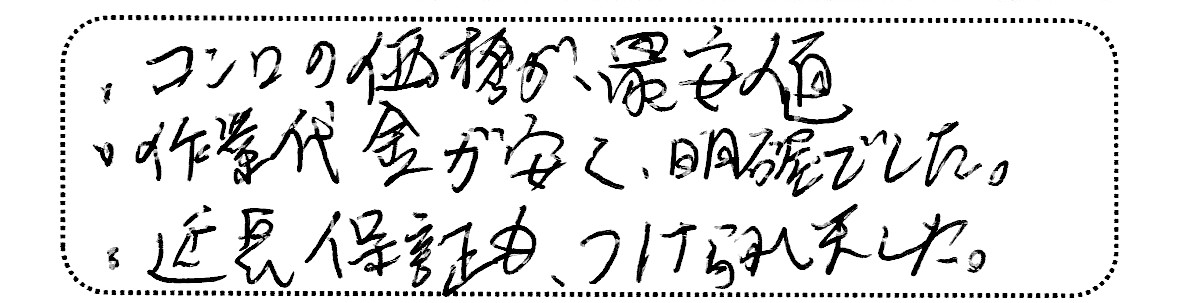 ・コンロの価格が、最安値
・作業代金が安く、明確でした。
・延長保証も、つけられました。